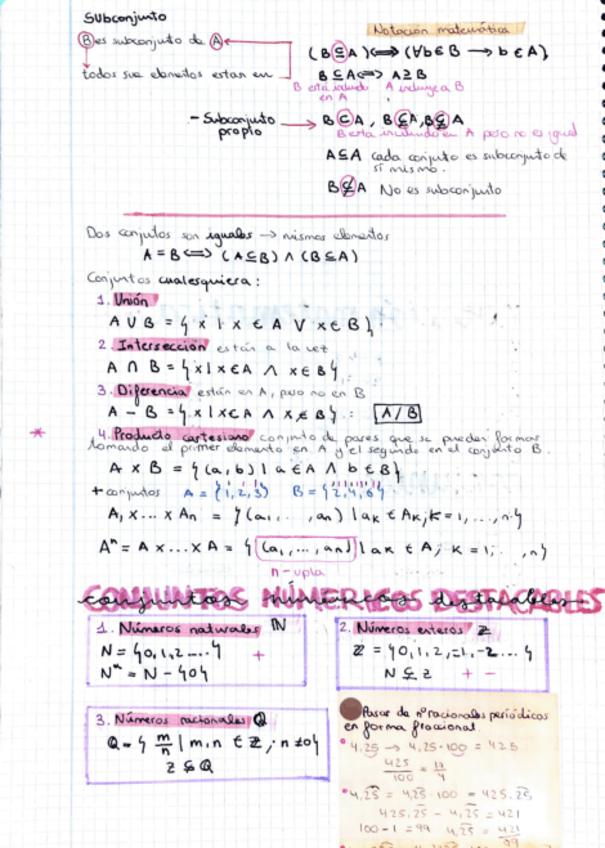 Subconjunto
Notación matemática
B es subconjunto de A
(B ⊆ A) ⟺ (∀b ∈ B → b ∈ A)
todos sus elementos estan en
B ⊆ A ⟺ A ⊇ B
B está incluido A incluye a B
en A
- Subconjunto propio → B ⊂ A, B ⊊ A, B ⊊ A
B esta incluido en A pero no es igual
A ⊆ A cada conjunto es subconjunto de
sí mismo.
B ⊈ A No es subconjunto
Dos conjuntos son iguales → mismos elementos
A = B ⟺ (A ⊆ B) ∧ (B ⊆ A)
Conjuntos cualesquiera:
1. Unión
A ∪ B = { x | x ∈ A ∨ x ∈ B }
2. Intersección están a la vez
A ∩ B = { x | x ∈ A ∧ x ∈ B }
3. Diferencia están en A, pero no en B
A - B = { x | x ∈ A ∧ x ∉ B } : A / B
* 4. Producto cartesiano conjunto de pares que se pueden formar
tomando el primer elemento en A y el segundo en el conjunto B.
A × B = { (a, b) | a ∈ A ∧ b ∈ B }
+ conjuntos A = {1, 2, 3} B = {2, 4, 6}
A₁ × ... × An = { (a₁, ..., an) | aₖ ∈ Aₖ, k = 1, ..., n }
Aⁿ = A × ... × A = { (a₁, ..., an) | aₖ ∈ A, k = 1, ..., n }
n-upla
CONJUNTOS NÚMERICOS DESTACABLES
conjuntos númericos destacables
1. Números naturales ℕ
N = {0, 1, 2 .... } +
N* = N - {0}
2. Números enteros ℤ
ℤ = {0, 1, 2, -1, -2 ... }
N ⊊ ℤ + -
3. Números racionales ℚ
ℚ = { m/n | m, n ∈ ℤ, n ≠ 0 }
ℤ ⊊ ℚ
Pasar de nº racionales periódicos
en forma fraccional.
4,25 → 4,25 · 100 = 425
425/100 = 17/4
4,25 = 4,25 · 100 = 425,25
425,25 - 4,25 = 421
100 - 1 = 99 4,25 = 421/99